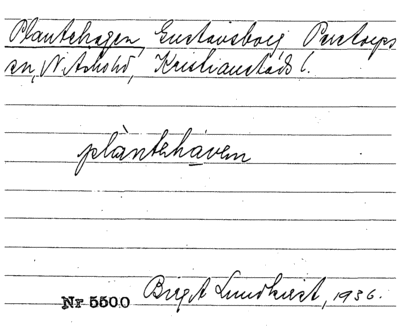 Plantehagen, Gustavsborg, Perstorps
sn, N. Åsbo hd, Kristianstads l.
plàntehaven
Nr 5500 Birgit Lundkvist, 1936.